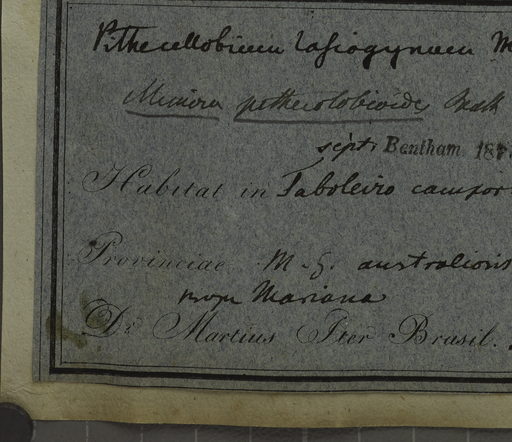 Pithecellobium lasiogynum M
Mimosa pithecolobioides Benth
script. Bentham 187
Habitat in Taboleiro campor
Provinciae M. G. australioris
prope Mariana
Dr. Martius Iter Brasil.